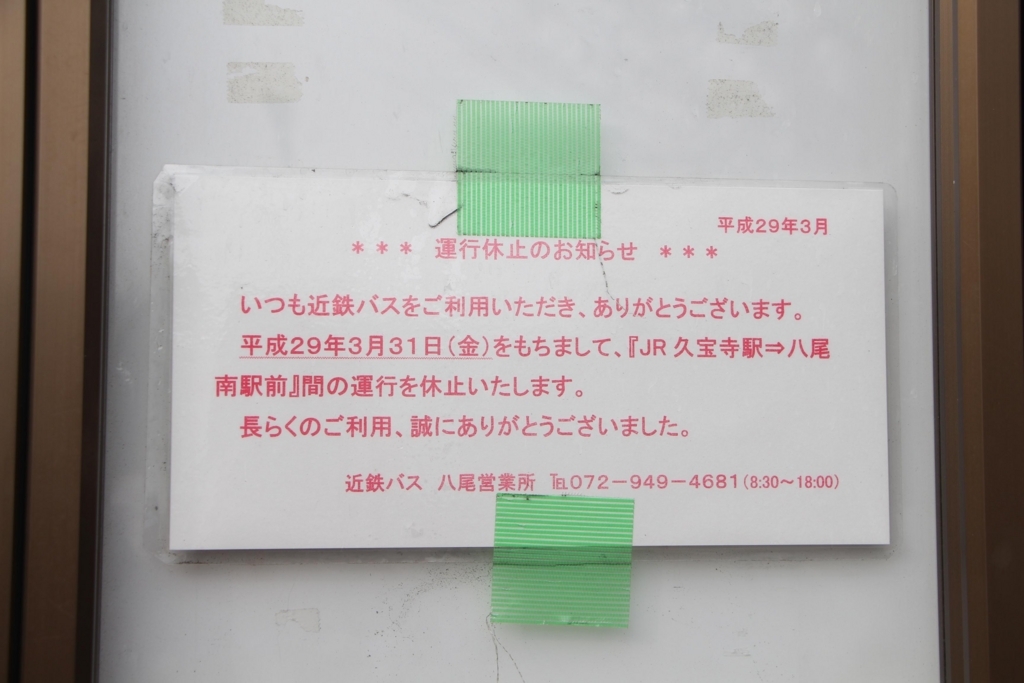 平成29年3月
＊＊＊ 運行休止のお知らせ ＊＊＊
いつも近鉄バスをご利用いただき、ありがとうございます。
平成29年3月31日(金)をもちまして、『JR久宝寺駅⇒八尾
南駅前』間の運行を休止いたします。
長らくのご利用、誠にありがとうございました。
近鉄バス 八尾営業所 ℡072－949－4681(8:30～18:00)